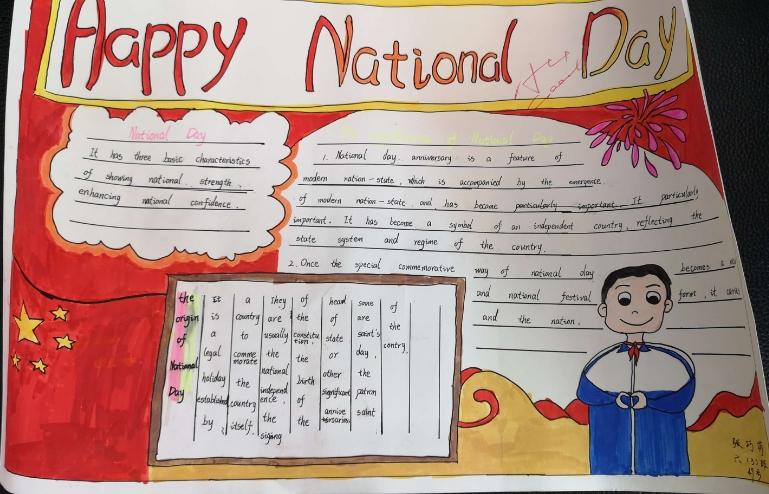 Happy National Day
National Day
It has three basic characteristics
of showing national strength,
enhancing national confidence.
of National Day
1. National day anniversary is a feature of
modern nation-state, which is accompanied by the emergence
of modern nation-state, and has become particularly important. It particularly
important. It has become a symbol of an independent country, reflecting the
state system and regime of the country.
2. Once the special commemorative way of national day becomes a
and national festival form, it
and the nation.
the origin of National Day
It is a legal holiday established by
a country to comme morate the country itself.
They are usually the national independ ence, the signing
of the constitu tion, the birth of the
head of state or other significant annive rsaries
some are saint's day, the patron saint
of the contry.